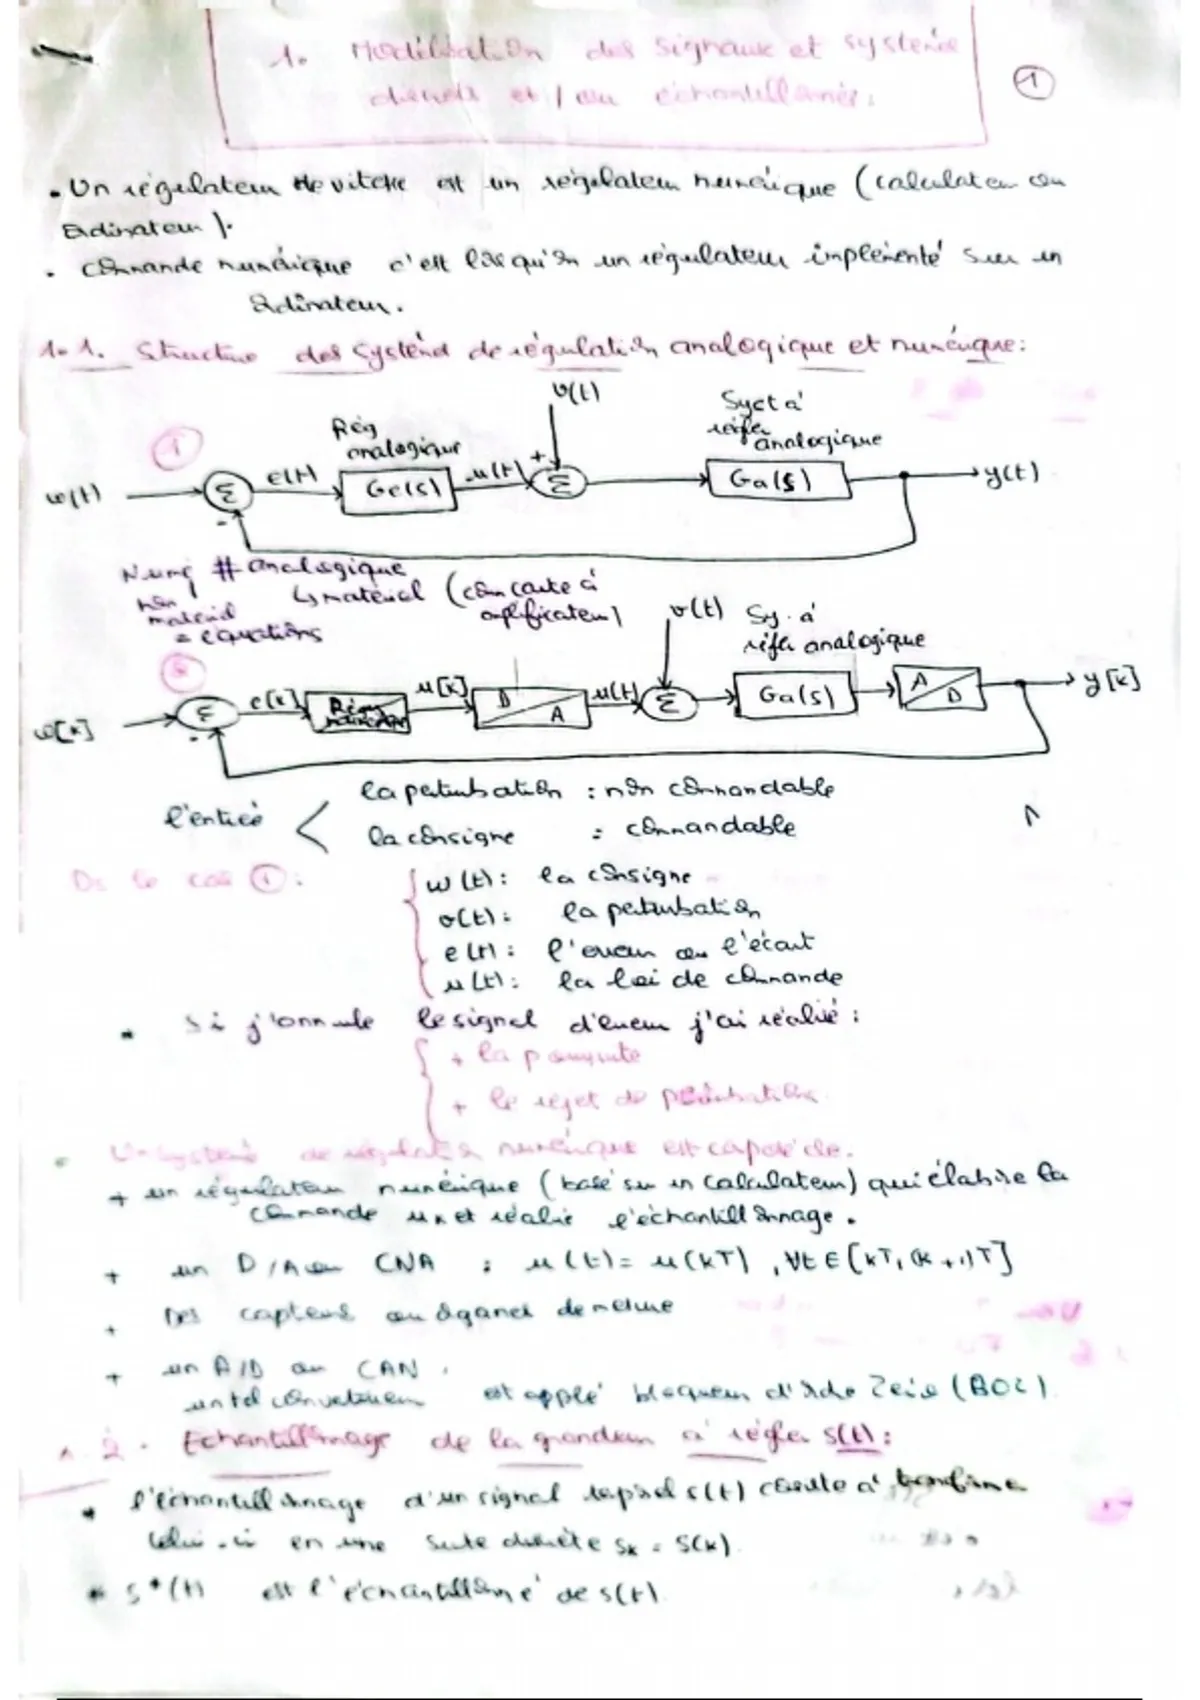 1. Modélisation des signaux et système
discrets et / ou échantillonnés.
1
• Un régulateur de vitesse est un régulateur numérique (calculateur ou
Ordinateur).
• Commande numérique c'est lorsqu'on un régulateur implémenté sur un
Ordinateur.
1.1. Structure des système de régulation analogique et numérique:
v(t)
1
Rég
analogique
Syst à
régler
analogique
w(t)
Σ
e(t)
Gc(s)
u(t)
+
Σ
Ga(s)
y(t)
-
Numé # analogique
↳ matériel (comme carte à
amplificateur)
non
matériel
= équations
v(t)
Sy. à
régler analogique
2
w[k]
Σ
e[k]
Régu
numérique
u[k]
D
A
u(t)
Σ
Ga(s)
A
D
y[k]
-
l'entrée <
la perturbation : non commandable
la consigne : commandable
Ds le cas 1 :
w(t): la consigne
v(t): la perturbation
e(t): l'erreur ou l'écart
u(t): la loi de commande
• Si j'annule le signal d'erreur j'ai réalisé :
+ la poursuite
+ le rejet de perturbations
• Un système de régulation numérique est capable de.
+ un régulateur numérique (basé sur un calculateur) qui élabore la
commande uk et réalise l'échantillonnage.
+ un D/A ou CNA : u(t) = u(kT), ∀t ∈ [kT, (k+1)T]
+ Des capteurs ou organes de mesure
+ un A/D ou CAN.
un tel convertisseur est applé bloqueur d'ordre Zéro (BOZ).
1.2. Echantillonnage de la grandeur à régler s(t):
• l'échantillonnage d'un signal s(t) consiste à transformer
celui-ci en une suite discrète sk = s(k).
• s*(t) est l'échantillonné de s(t).